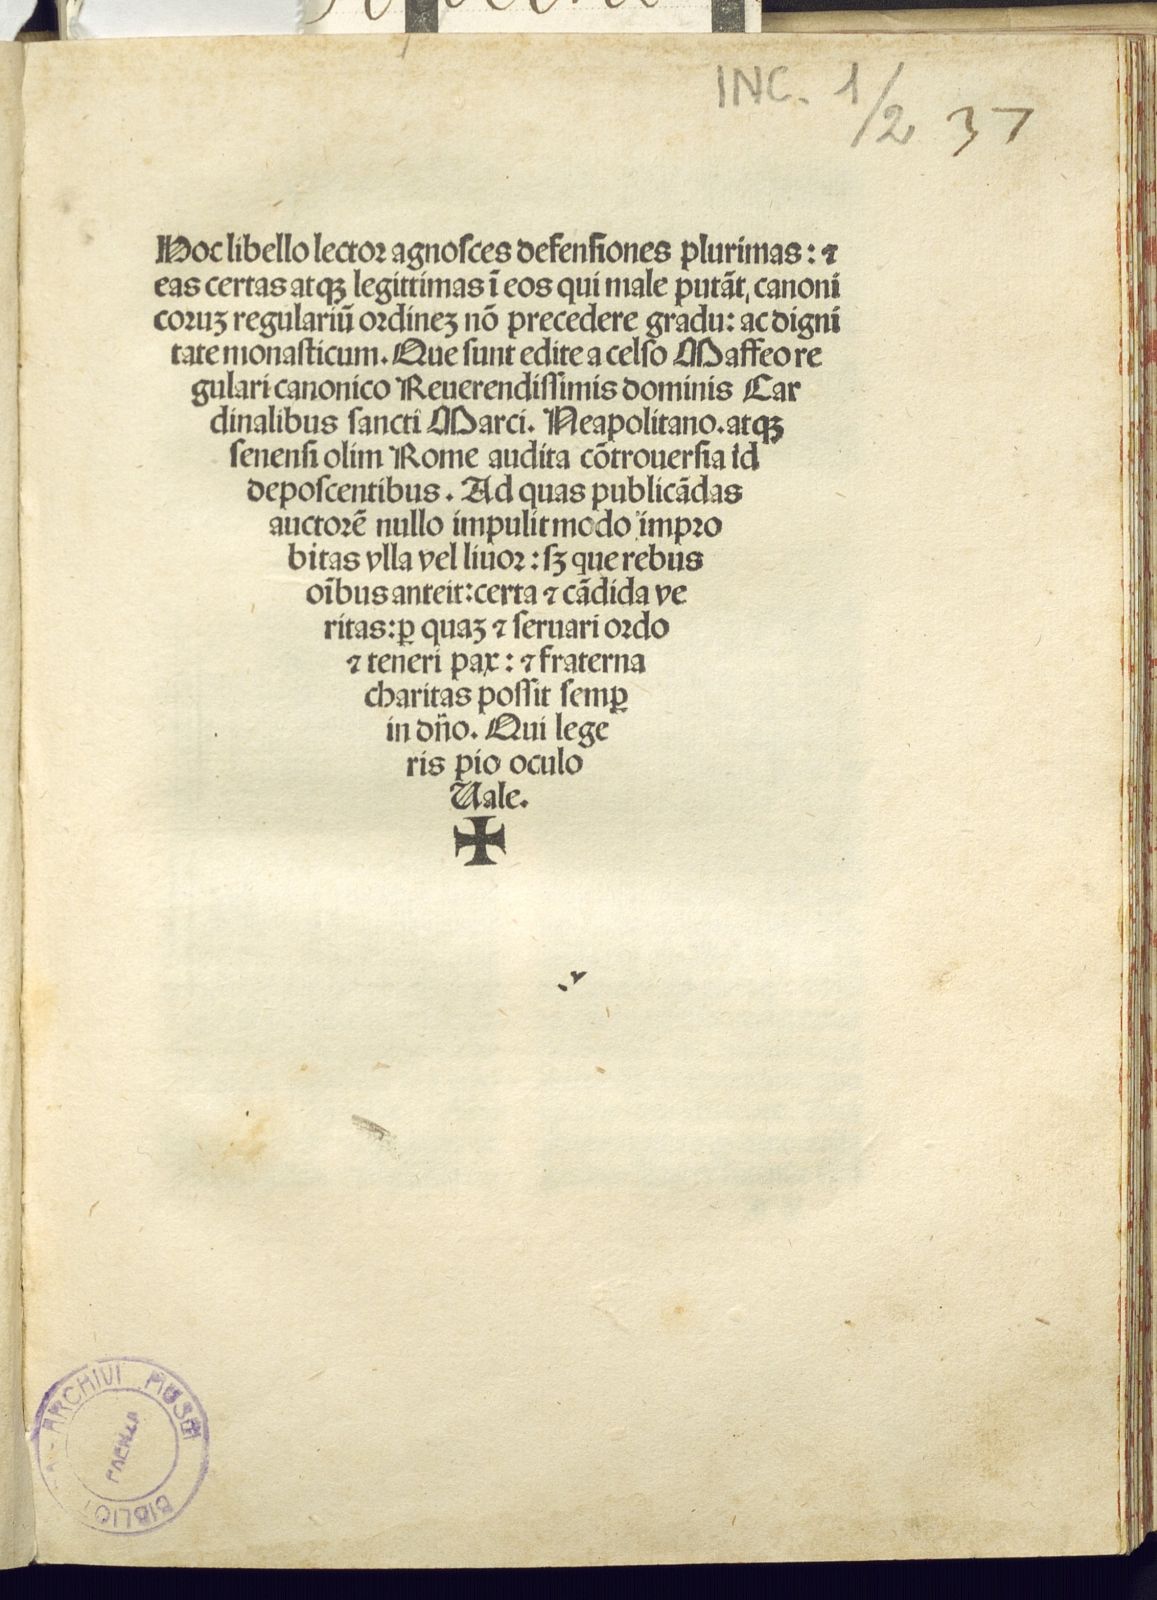 INC. 1/2 37
Hoc libello lector agnosces defensiones plurimas: ⁊
eas certas atqꝫ legittimas ī eos qui male putāt, canoni
coruꝫ regulariū ordineꝫ nō precedere gradu: ac digni
tate monasticum. Que sunt edite a celso Maffeo re
gulari canonico Reuerendissimis dominis Car
dinalibus sancti Marci. Neapolitano. atqꝫ
senensi olim Rome audita cōtrouersia id
deposcentibus. Ad quas publicādas
auctorē nullo impulit modo impro
bitas vlla vel liuor: sꝫ que rebus
oībus anteit: certa ⁊ cādida ve
ritas: ꝑ quaꝫ ⁊ seruari ordo
⁊ teneri pax: ⁊ fraterna
charitas possit semꝑ
in dño. Qui lege
ris pio oculo
Uale.
ARCHIVI MUSEI
FAENZA